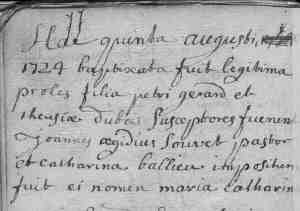 die quinta augusti
1724 baptizata fuit legitima
proles filia petri gerard et
theresiæ dubois Susceptores fuerunt
Joannes ægidius Louvet pastor
et catharina ballieu impositum
fuit ei nomen maria catharin